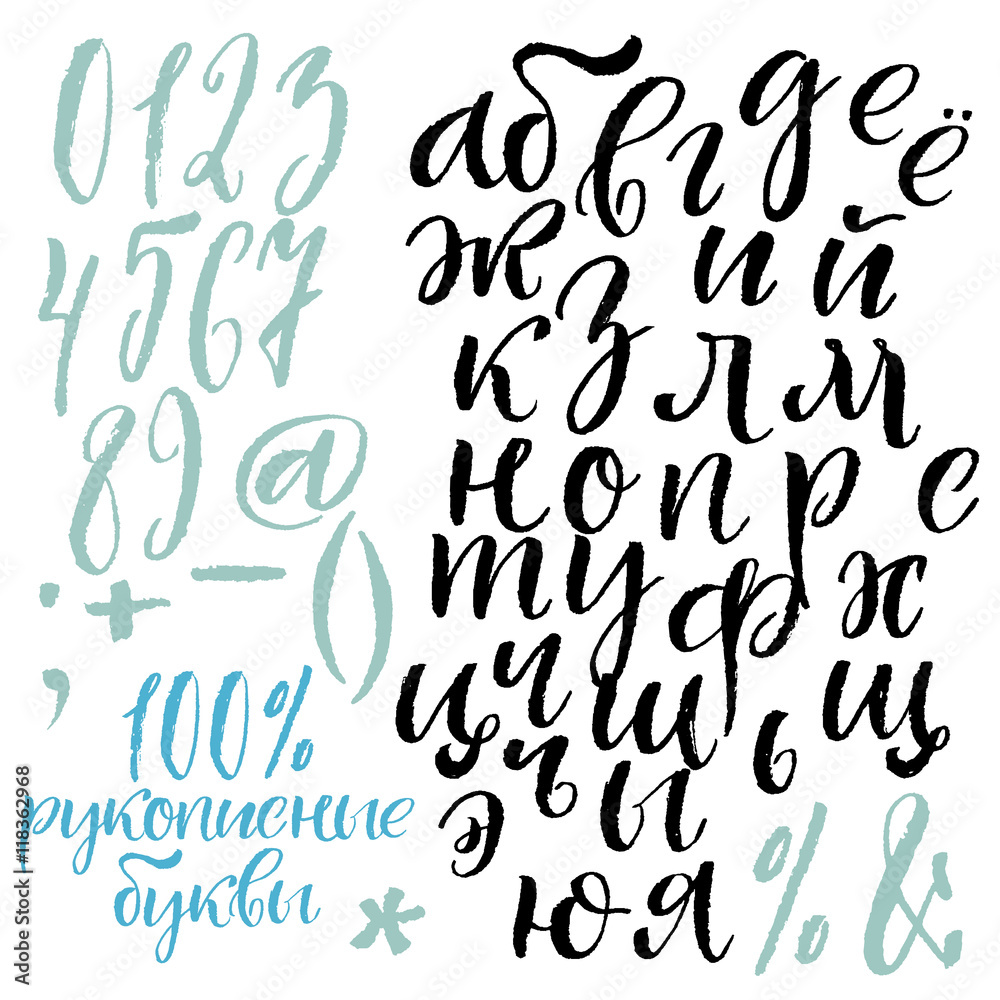 0123
4567
89@
.+-()
,
100%
рукописные
буквы
*
абвгдеё
жзий
клм
нопрс
туфх
цчшьщ
ъы
э
юя
%&
Adobe Stock | #118362968